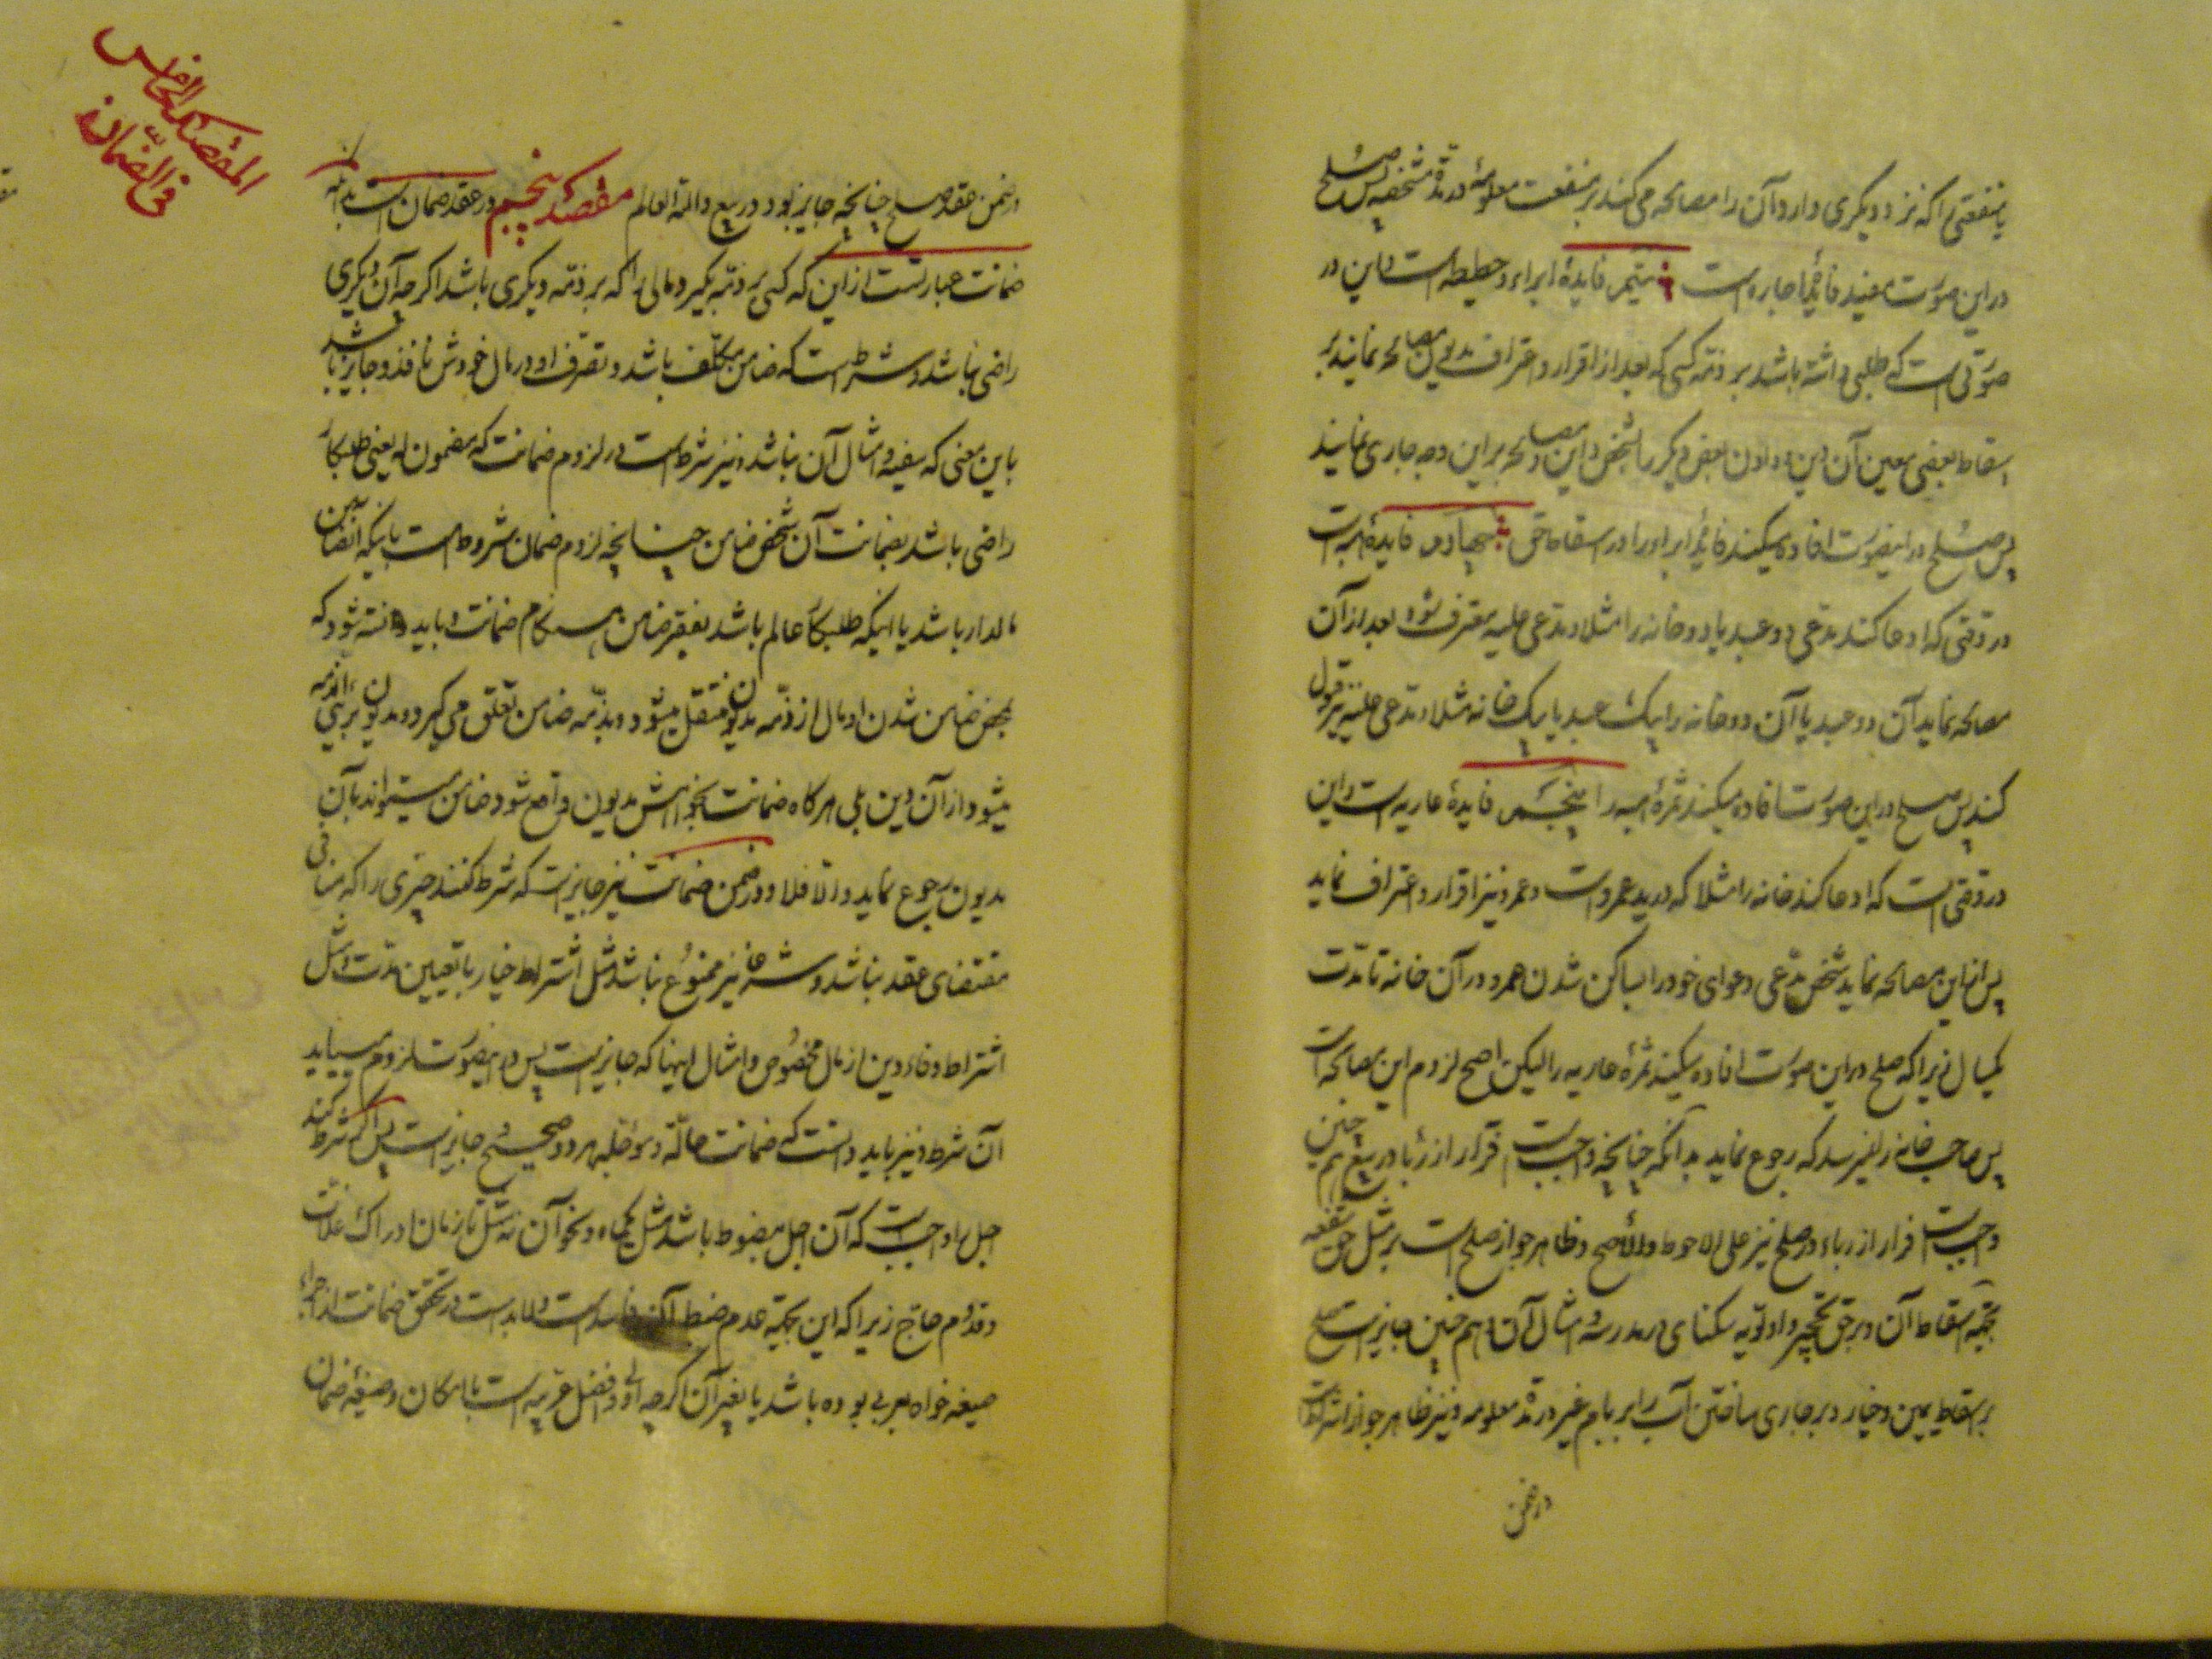 یا منفعتی را که نزد دیگری دارد آن را مصالحه می کند بر منفعت معلومهٔ در مدّة مشخصه پس صلح
در این صورت مفید فایدهٔ اجاره است سیّم فایدهٔ ابراء و حطیطه است و این در
صورتی است که طلبی داشته باشد بر ذمّه کسی که بعد از اقرار و اعتراف مدیون مصالحه نمایند بر
اسقاط بعضی معین آن دین و دادن بعض دیگر را بشخص داین و مصالحه بر این وجه جاری نمایند
پس صلح در اینصورت افاده میکند فایدهٔ ابراء را و اسقاط حق چهارم فایدهٔ هبه است
در وقتی که ادعا کند مدّعی دو عبد یا دو خانه را مثلا و مدّعی علیه معترف شود بعد از آن
مصالحه نماید آن دو عبد یا آن دو خانه را بیک عبد یا یک خانه مثلا و مدّعی علیه نیز قبول
کند پس صلح در این صورت افاده میکند ثمرهٔ هبه را پنجم فایدهٔ عاریه است و این
در وقتی است که ادعا کند خانه را مثلا که در ید عمرو است و عمرو نیز اقرار و اعتراف نماید
پس از این مصالحه نماید شخص مدّعی دعوای خود را بساکن شدن عمرو در آن خانه تا مدّت
یکسال زیرا که صلح در این صورت افاده میکند ثمرهٔ عاریه را لیکن اصح لزوم این مصالحه است
پس صاحب خانه را نمیرسد که رجوع نماید بدانکه چنانچه واجبست فرار از ربا در بیع هم چنین
واجبست فرار از رباء در صلح نیز علی الاحوط والاصح و ظاهر جواز صلح است بر مثل حق شفعه
بجهة اسقاط آن و بر حق تحجیر و اولویّه سکنای در مدرسه و امثال آن و هم چنین جایز است صلح
بر اسقاط یمین و خیار و بر جاری ساختن آب را بر بام غیر در مدّة معلومه و نیز ظاهر جواز اشتراط
در ضمن
المقصد الخامس
فی الضّمان
در ضمن عقد صلح چنانچه جایز بود در بیع والله العالم مقصد پنجم در عقد ضمان است بدانکه
ضمانت عبارتست از این که کسی بر ذمّه بگیرد مالی را که بر ذمّه دیگری باشد اگر چه آن دیگری
راضی نباشد و شرط است که ضامن مکلّف باشد و تصرّف او در مال خودش نافذ و جایز باشد
باین معنی که سفیه و امثال آن نباشد و نیز شرط است در لزوم ضمانت که مضمون له یعنی طلبکار
راضی باشد بضمانت آن شخص ضامن چنانچه لزوم ضمان مشروط است باینکه آن ضامن
مالدار باشد یا اینکه طلبکار عالم باشد بفقر ضامن هنگام ضمانت و باید دانسته شود که
بمحض ضامن شدن او مال از ذمّه مدیون منتقل میشود و بذمّه ضامن تعلّق می گیرد و مدیون بریء الذمه
میشود از آن دین بلی هر گاه ضمانت بخواهش مدیون واقع شود ضامن میتواند بآن
مدیون رجوع نماید والا فلا و در ضمن ضمانت نیز جایز است که شرط کنند چیزی را که منافی
مقتضای عقد نباشد و شرعا نیز ممنوع نباشد مثل اشتراط خیار با تعیین مدّت و مثل
اشتراط وفاء دین از مال مخصوص و امثال اینها که جایز است پس در اینصورت لزوم مییابد
آن شرط و نیز باید دانست که ضمانت حالّه و مؤجله هر دو صحیح و جایز است پس اگر شرط کند
اجل را واجبست که آن اجل مضبوط باشد مثل یکماه و نحو آن نه مثل تا زمان ادراک غلّات
و قدوم حاج زیرا که این بجهة عدم ضبط آن فاسد است و لابد است در تحقق ضمانت از اجراء
صیغه خواه بعربی بوده باشد یا بغیر آن اگر چه اولی و افضل عربیه است با امکان و صیغهٔ ضمان